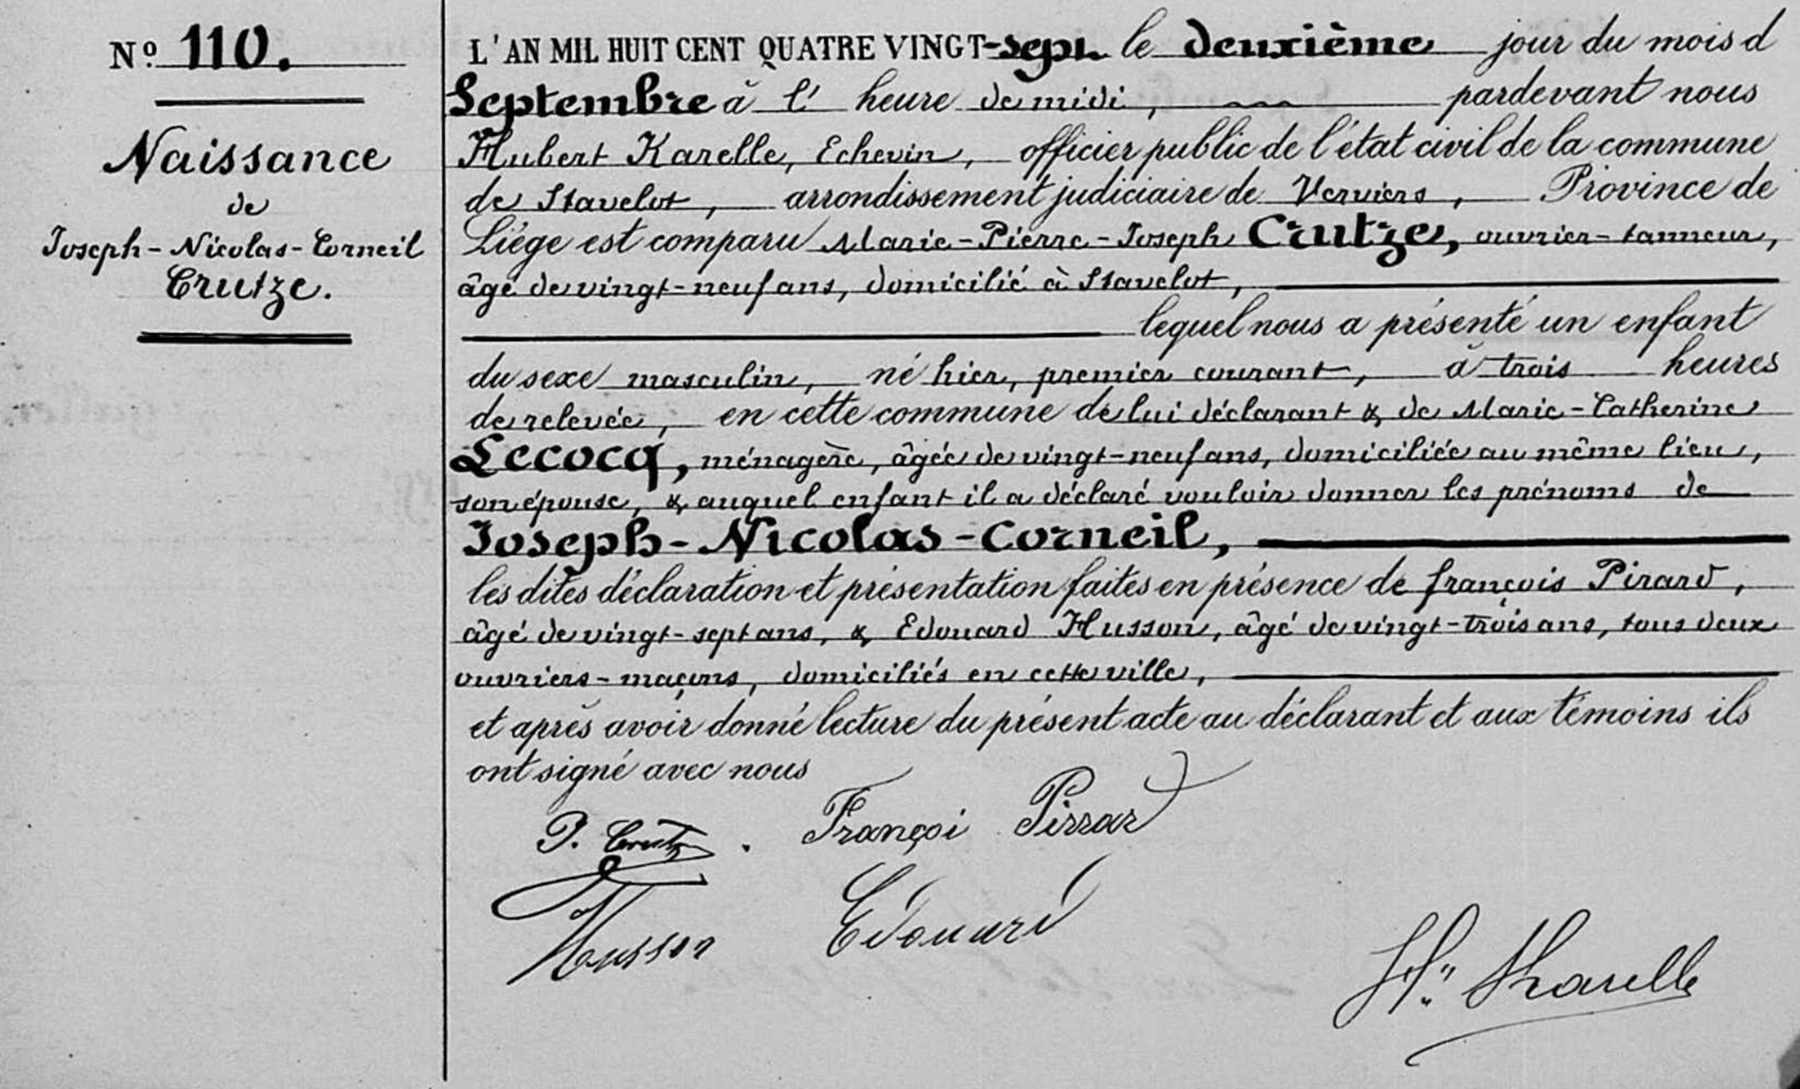 Nº 110.
Naissance
de
Joseph-Nicolas-Corneil
Crutze.
L'AN MIL HUIT CENT QUATRE VINGT-sept le deuxième jour du mois d
Septembre à l'heure de midi, pardevant nous
Hubert Karelle, Echevin, officier public de l'état civil de la commune
de Stavelot, arrondissement judiciaire de Verviers, Province de
Liège est comparu Marie-Pierre-Joseph Crutze, ouvrier-tanneur,
âgé de vingt-neuf ans, domicilié à Stavelot,
lequel nous a présenté un enfant
du sexe masculin, né hier, premier courant, à trois heures
de relevée, en cette commune de lui déclarant & de Marie-Catherine
Lecocq, ménagère, âgée de vingt-neuf ans, domiciliée au même lieu,
son épouse, & auquel enfant il a déclaré vouloir donner les prénoms de
Joseph-Nicolas-Corneil,
les dites déclaration et présentation faites en présence de françois Pirard,
âgé de vingt-sept ans, & Edouard Husson, âgé de vingt-trois ans, tous deux
ouvriers-maçons, domiciliés en cette ville,
et après avoir donné lecture du présent acte au déclarant et aux témoins ils
ont signé avec nous
P. Crutze. Françoi Pirrard
Husson Edouard
Hu Karelle